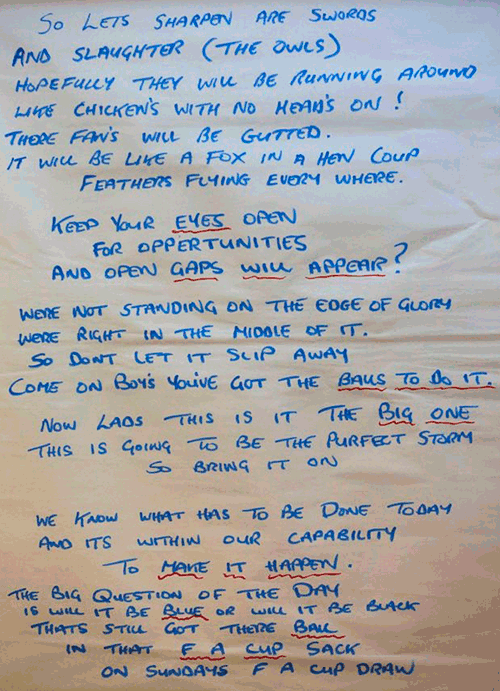 SO LETS SHARPEN ARE SWORDS
AND SLAUGHTER (THE OWLS)
HOPEFULLY THEY WILL BE RUNNING AROUND
LIKE CHICKEN'S WITH NO HEAD'S ON !
THERE FAN'S WILL BE GUTTED.
IT WILL BE LIKE A FOX IN A HEN COUP
FEATHERS FLYING EVERY WHERE.
KEEP YOUR EYES OPEN
FOR OPPERTUNITIES
AND OPEN GAPS WILL APPEAR?
WERE NOT STANDING ON THE EDGE OF GLORY
WERE RIGHT IN THE MIDDLE OF IT.
SO DONT LET IT SLIP AWAY
COME ON BOY'S YOUIVE GOT THE BALLS TO DO IT.
NOW LADS THIS IS IT THE BIG ONE
THIS IS GOING TO BE THE PURFECT STORM
SO BRING IT ON
WE KNOW WHAT HAS TO BE DONE TODAY
AND ITS WITHIN OUR CAPABILITY
TO MAKE IT HAPPEN.
THE BIG QUESTION OF THE DAY
IS WILL IT BE BLUE OR WILL IT BE BLACK
THATS STILL GOT THERE BALL
IN THAT F A CUP SACK
ON SUNDAYS F A CUP DRAW